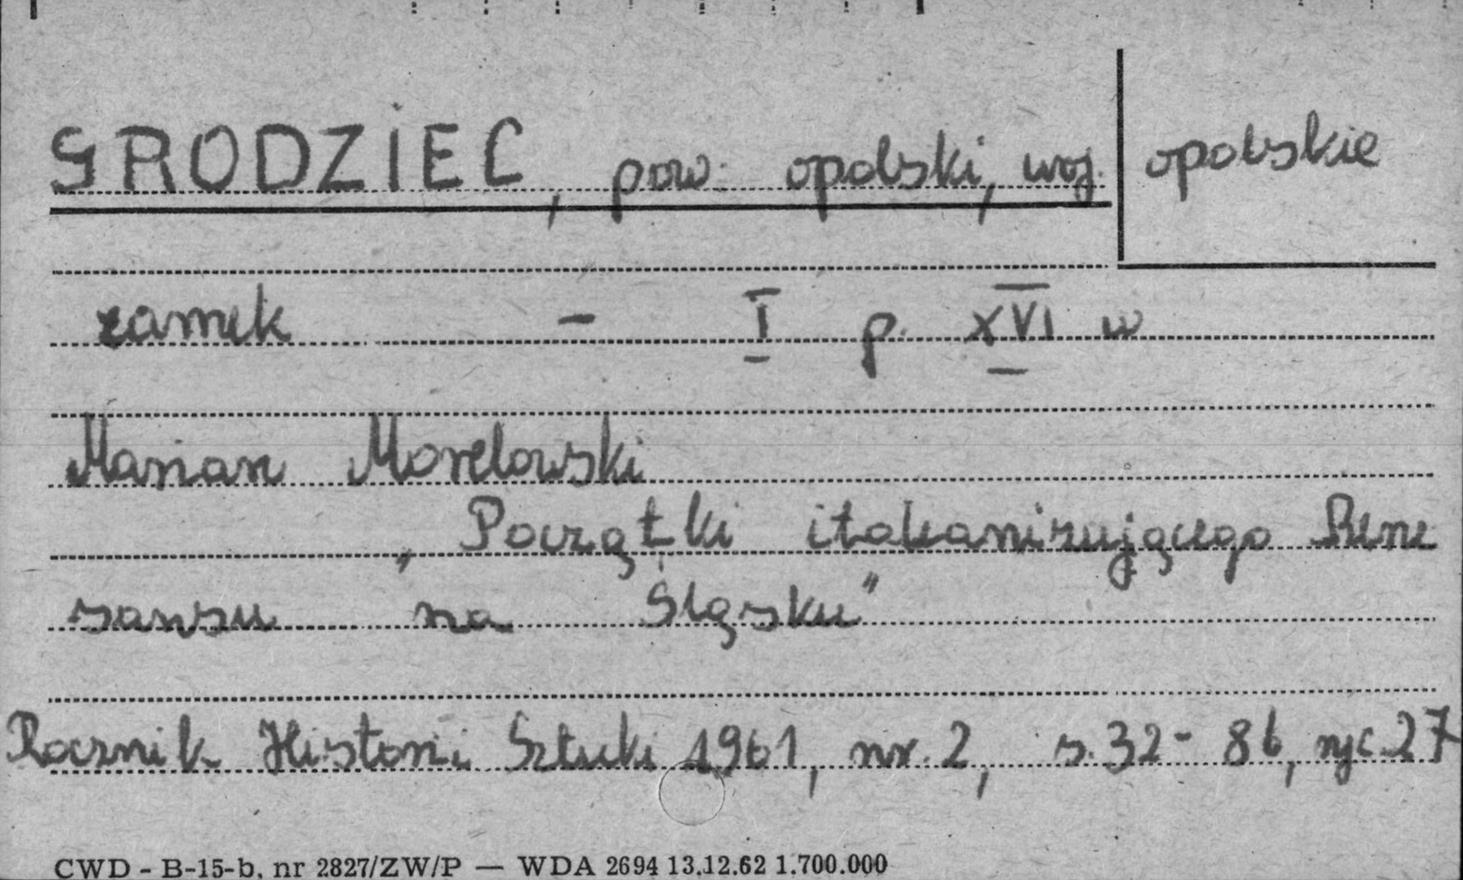 GRODZIEC, pow. opolski, woj. opolskie
zamek - I p. XVI w
Marian Morelowski
„Początki italianizującego Rene
sansu na Śląsku"
Rocznik Historii Sztuki 1961, nr. 2, s. 32-86, ryc. 27
CWD - B-15-b, nr 2827/ZW/P — WDA 2694 13.12.62 1.700.000